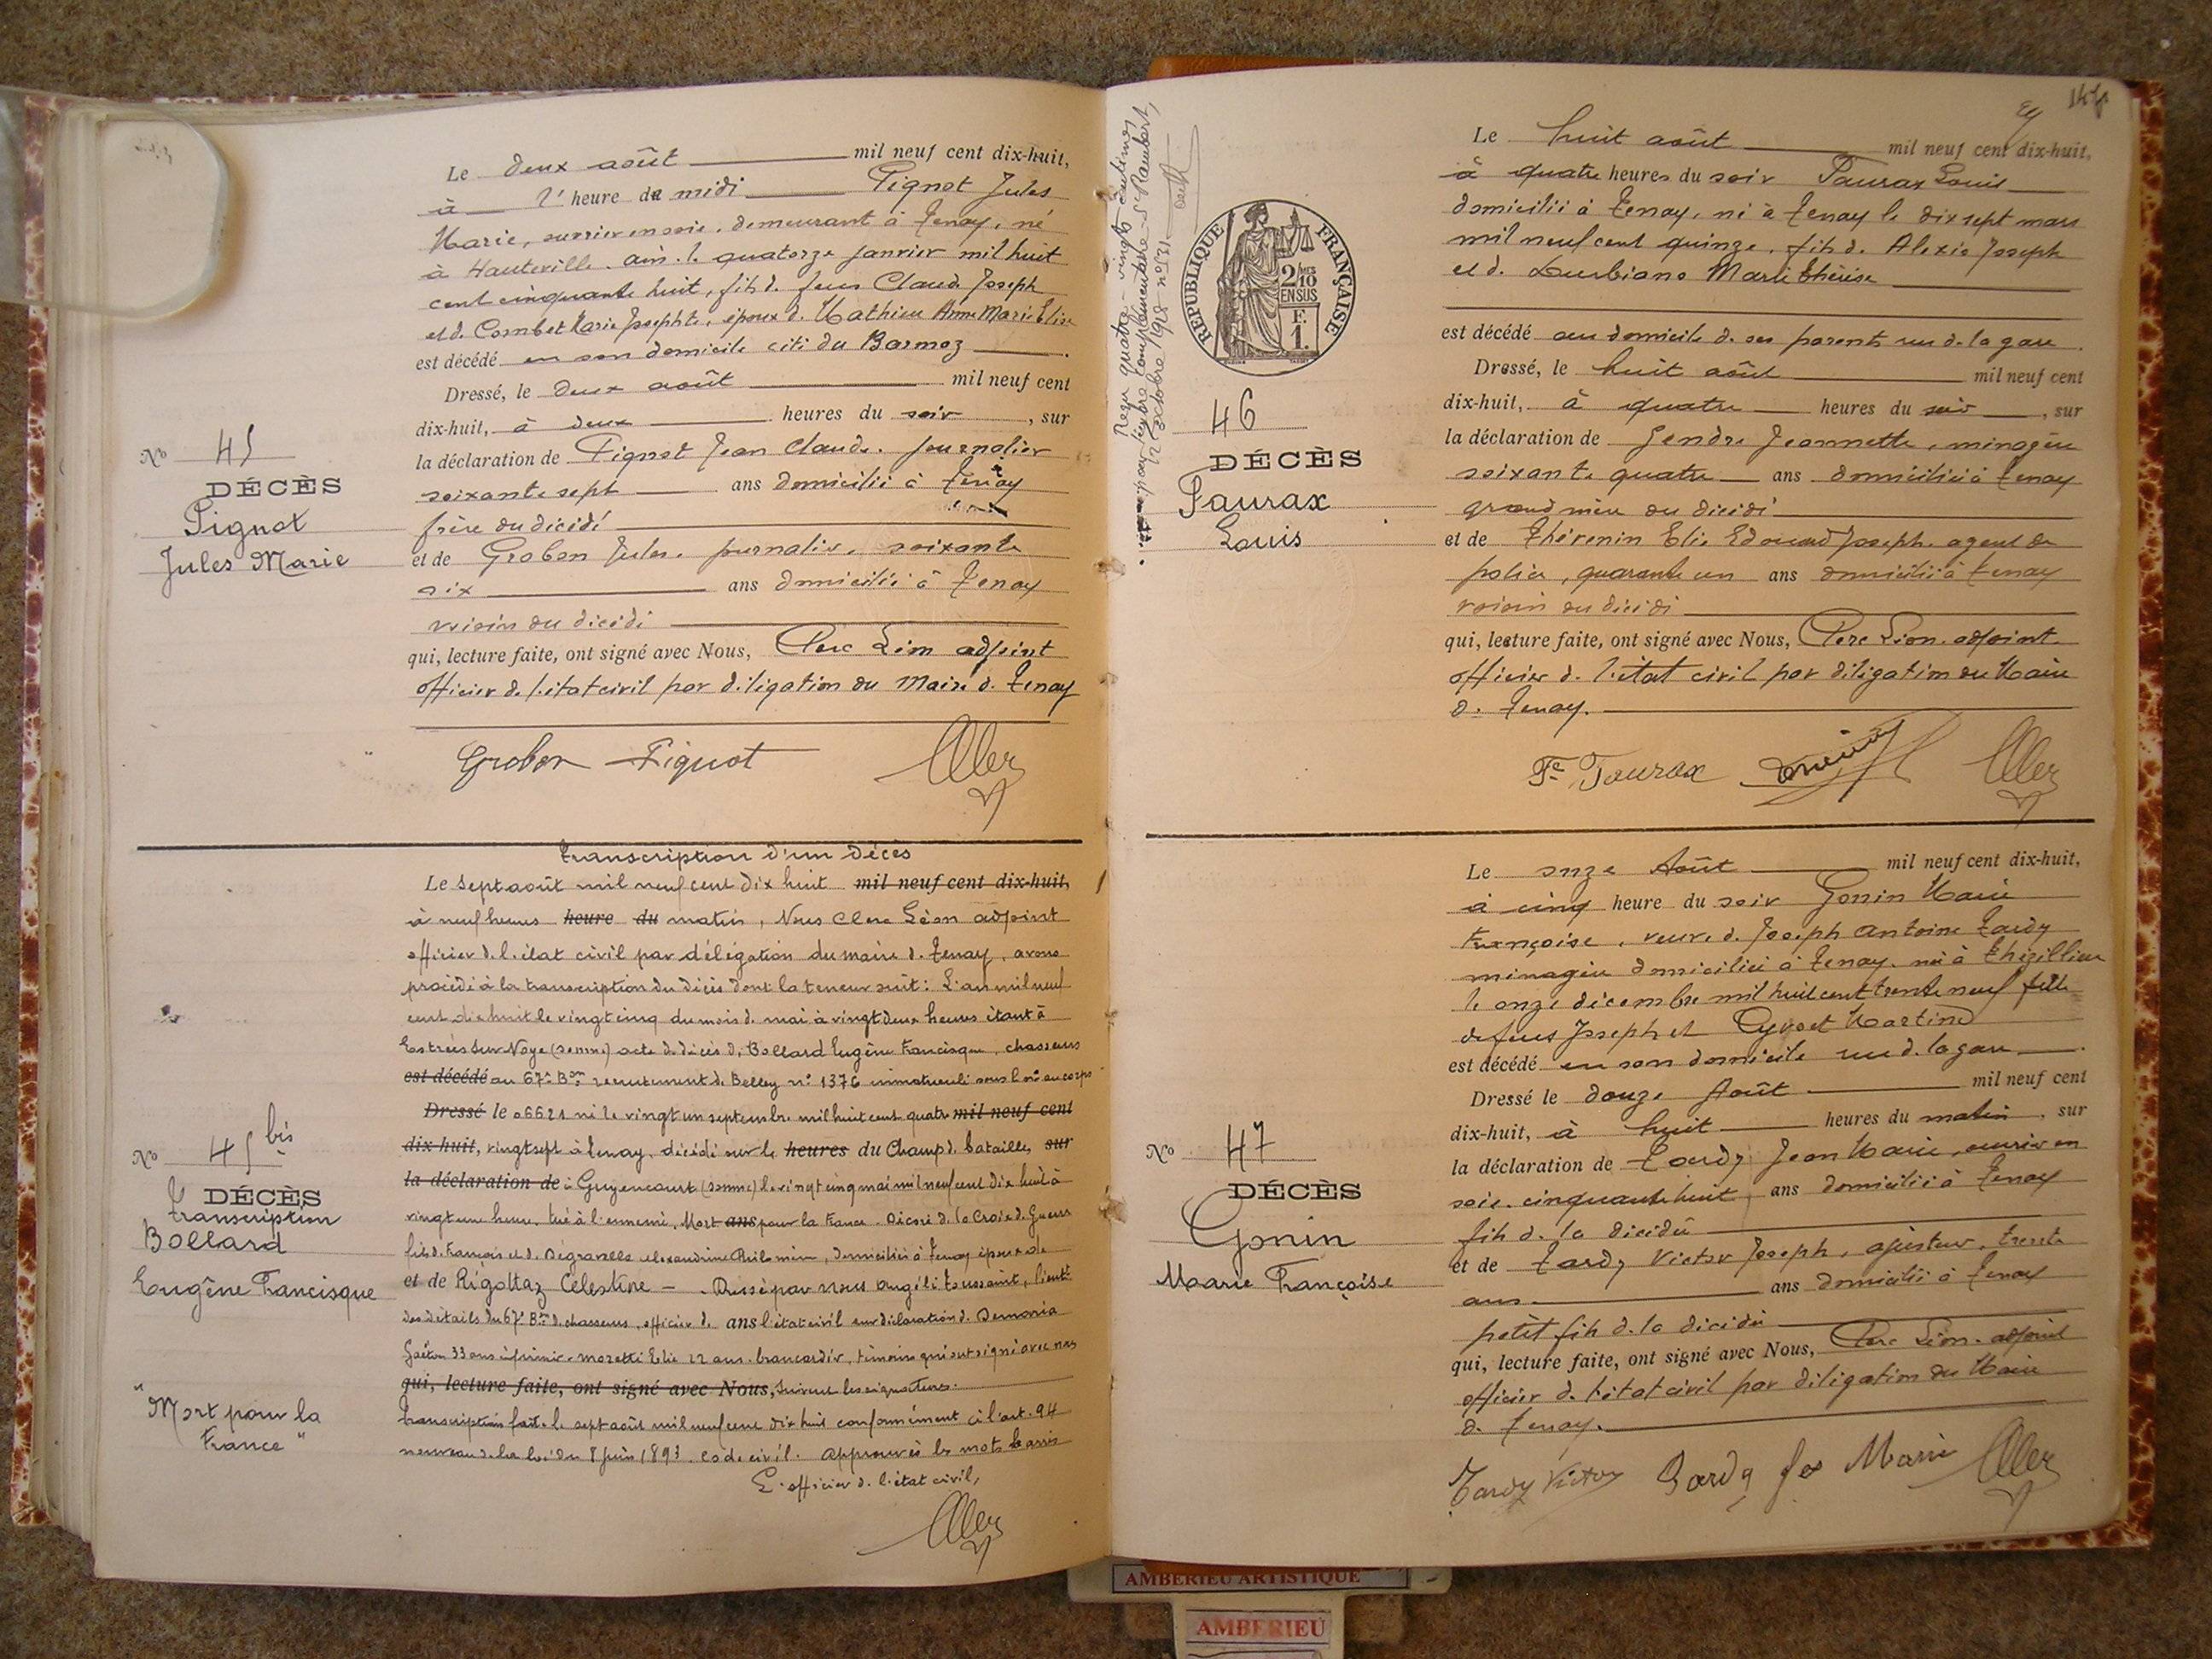 Le deux août mil neuf cent dix-huit,
à 1' heure de midi Pignot Jules
Marie, ouvrier en soie, demeurant à Tenay, né
à Hauteville. Ain. le quatorze janvier mil huit
cent cinquante huit, fils d. feus Claude Joseph
et d. Combet Marie Josephte, époux d. Mathieu Anne Marie Elise
est décédé en son domicile cité du Barmoz
Dressé, le deux août mil neuf cent
dix-huit, à deux heures du soir, sur
la déclaration de Pignot Jean Claude. journalier
soixante sept ans domicilié à Tenay
frère du décédé
et de Groben Jules. journalier. soixante
six ans domicilié à Tenay
voisin du décédé
qui, lecture faite, ont signé avec Nous, Clerc Léon adjoint
officier de l'état civil par délégation du Maire d. Tenay
Groben Pignot
No 45
DÉCÈS
Pignot
Jules Marie
Transcription d'un Décès
Le sept août mil neuf cent dix huit mil neuf cent dix-huit,
à neuf heures heure du matin, Nous Clerc Léon adjoint
officier d. l'état civil par délégation du maire d. Tenay, avons
procédé à la transcription du décès dont la teneur suit: L'an mil neuf
cent dix huit le vingt cinq du mois d. mai à vingt deux heures étant à
Estrées sur Noye (Somme) acte d. décès d. Bollard Eugène Francisque, chasseurs
est décédé au 67e Bon recrutement d. Belley n° 1376 immatriculé sous l. n° au corps
Dressé le 06621 né le vingt un septembre mil huit cent quatre mil neuf cent
dix-huit, vingt sept à Tenay, décédé sur le heures du Champ d. bataille, sur
la déclaration de à Guyencourt (Somme) le vingt cinq mai mil neuf cent dix huit à
vingt une heure, tué à l'ennemi, Mort ans pour la France. Décoré d. la Croix d. Guerre
fils d. François et d. Dégranelle Alexandrine Philomène, domicilié à Tenay époux de
et de Rigottaz Célestine — . Dressé par nous Angéli Toussaint, lieutt
des détails du 67e Bon d. chasseurs, officier de ans l'état civil sur déclaration d.
Gaëton 33 ans infirmier. Moretti Elie 22 ans. brancardier, témoins qui ont signé avec nous
qui, lecture faite, ont signé avec Nous, suivent les signatures.
Transcription faite le sept août mil neuf cent dix huit conformément à l'art. 94
nouveau de la loi du 8 juin 1893. code civil. Approuvés les mots barrés
L'officier d. l'état civil,
No 45 bis
DÉCÈS
transcription
Bollard
Eugène Francisque
"Mort pour la
France"
Reçu quatre-vingts centimes
par timbre complémentaire St Rambert,
12 octobre 1928 n° 531
RÉPUBLIQUE FRANÇAISE
2/10
EN SUS
F.
1.
Le huit août mil neuf cent dix-huit,
à quatre heures du soir Paurax Louis
domicilié à Tenay, né à Tenay le dix sept mars
mil neuf cent quinze, fils d. Alexis Joseph
et d. Durbiano Marie Thérèse
est décédé au domicile d. ses parents rue d. la gare
Dressé, le huit août mil neuf cent
dix-huit, à quatre heures du soir, sur
la déclaration de Gendre Jeannette, ménagère
soixante quatre ans domiciliée à Tenay
grand mère du décédé
et de Thévenin Elie Edouard Joseph. agent de
police, quarante un ans domicilié à Tenay
voisin du décédé
qui, lecture faite, ont signé avec Nous, Clerc Léon. adjoint.
officier d. l'état civil par délégation du Maire
d. Tenay.
Fe Paurax
46
DÉCÈS
Paurax
Louis
Le onze Août mil neuf cent dix-huit,
à cinq heure du soir Gonin Marie
Françoise, veuve d. Joseph Antoine Tardy
ménagère domiciliée à Tenay. née à Thézillieu
le onze décembre mil huit cent trente neuf fille
de feus Joseph et Martine
est décédé en son domicile rue d. la gare
Dressé le douze Août mil neuf cent
dix-huit, à huit heures du matin, sur
la déclaration de Tardy Jean Marie, ouvrier en
soie. cinquante huit ans domicilié à Tenay
fils d. la décédée
et de Tardy Victor Joseph, ajusteur, trente
ans ans domicilié à Tenay
petit fils d. la décédée
qui, lecture faite, ont signé avec Nous, Clerc Léon. adjoint
officier d. l'état civil par délégation du Maire
d. Tenay.
Tardy Victor Tardy Marie
No 47
DÉCÈS
Gonin
Marie Françoise
AMBERIEU ARTISTIQUE
AMBERIEU